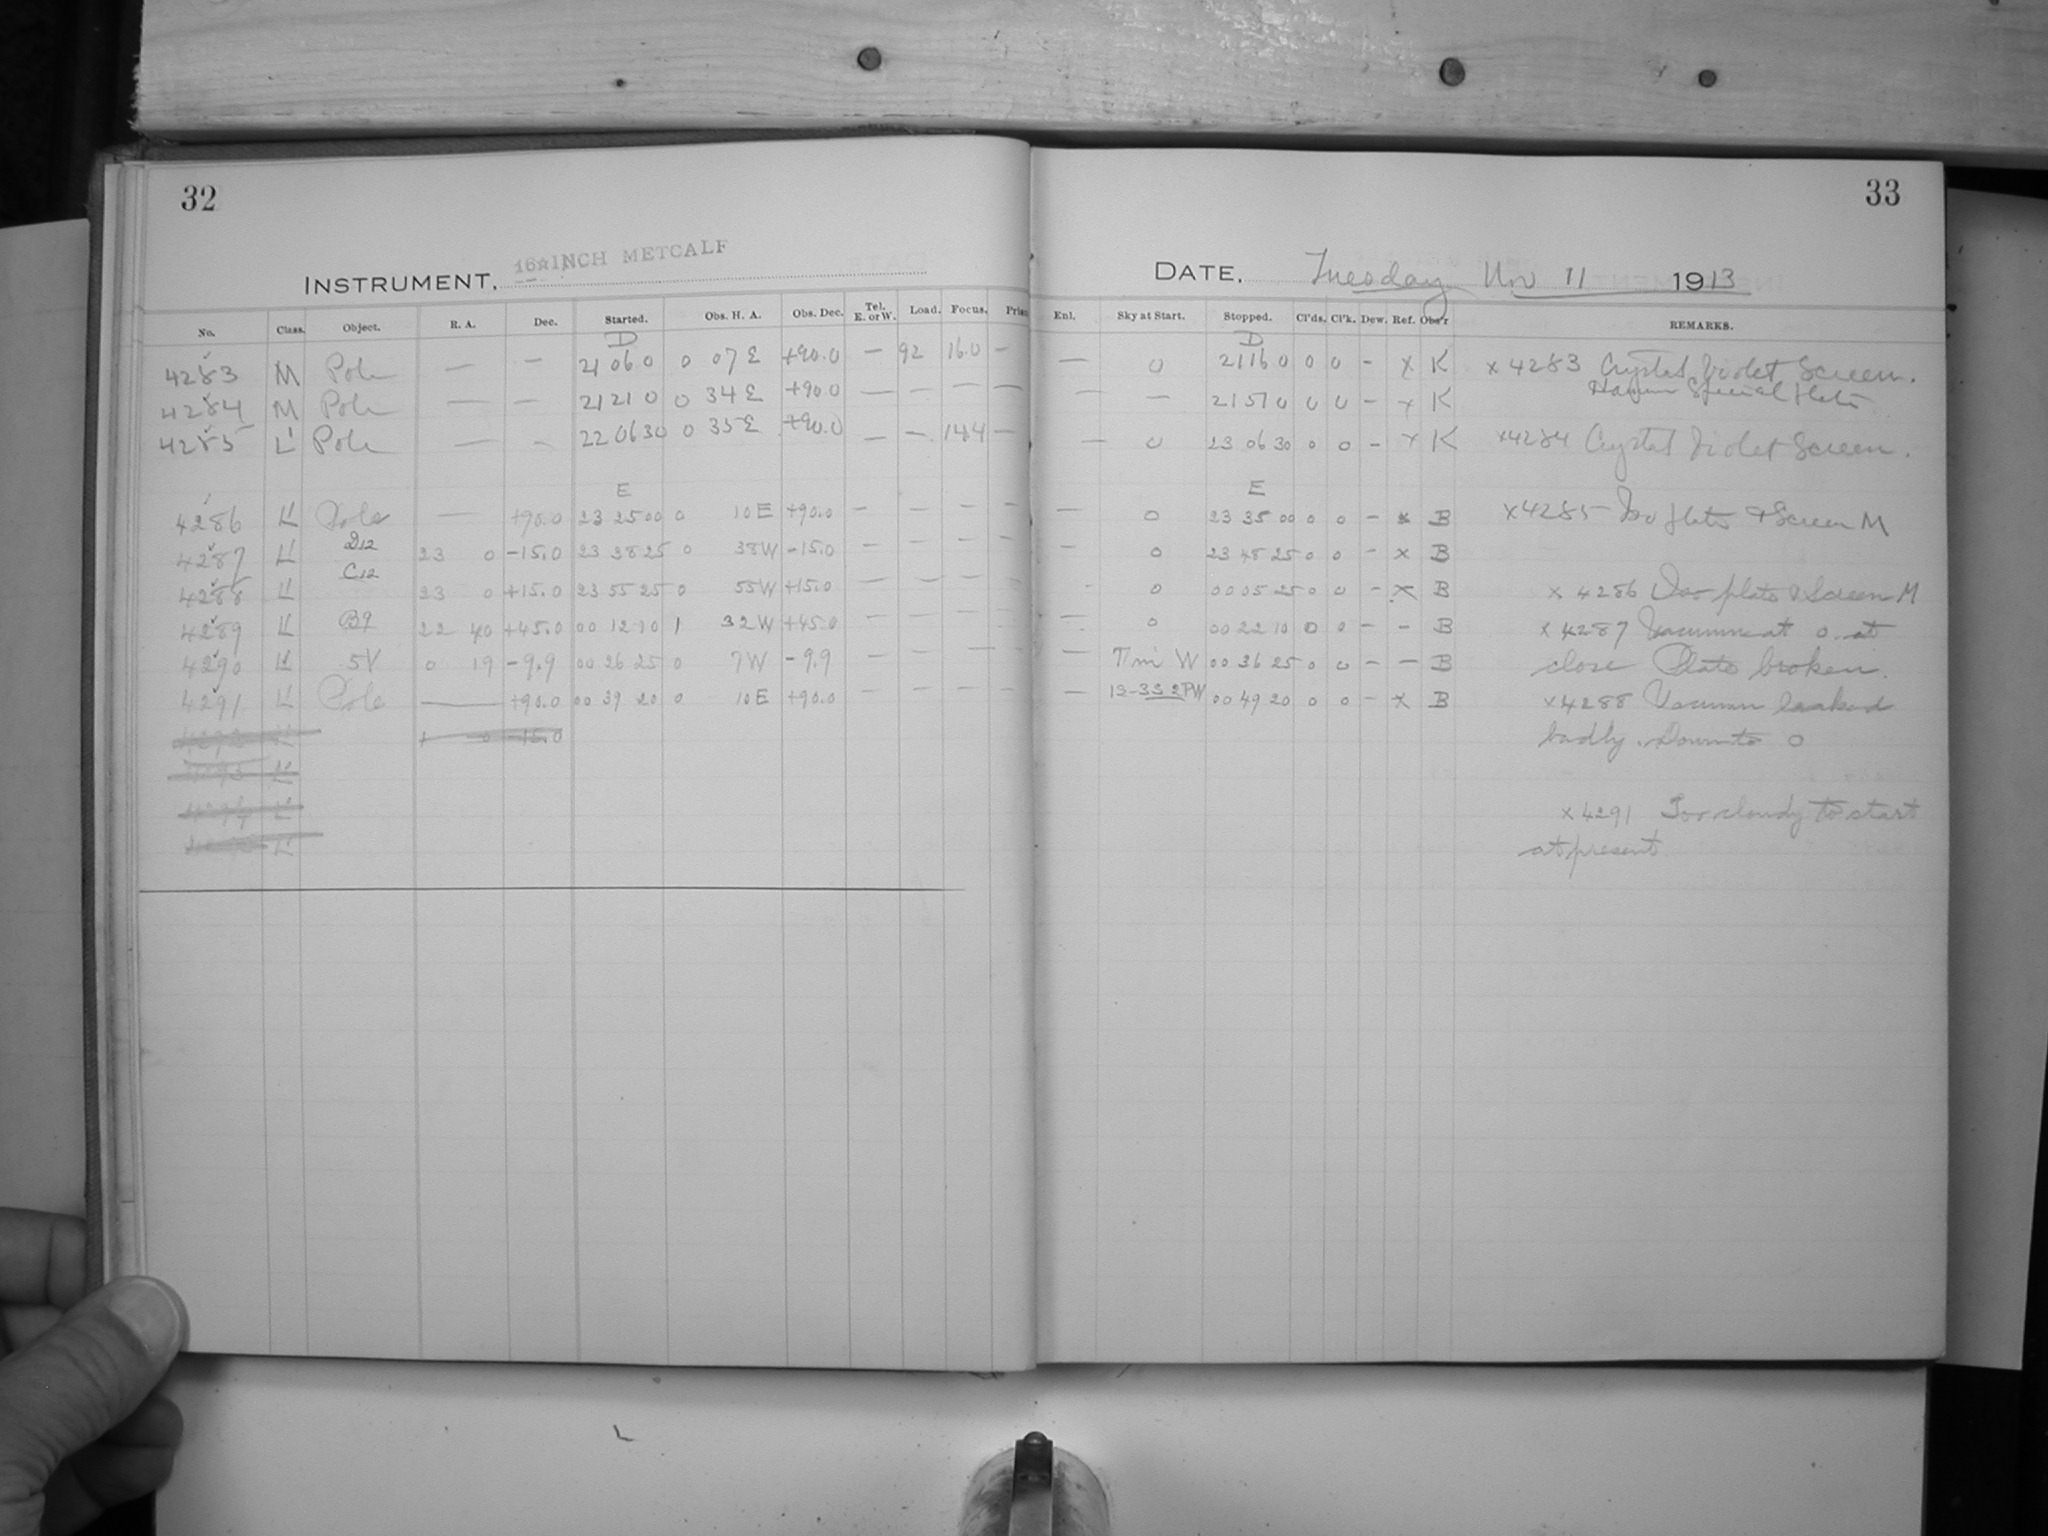 32
INSTRUMENT, 16 INCH METCALF
No. Class. Object. R. A. Dec. Started. Obs. H. A. Obs. Dec. Tel. E. or W. Load. Focus.
D
4283 M Pole — — 21 06 0 0 07 E +90.0 — 92 16.0 —
4284 M Pole — — 21 21 0 0 34 E +90.0 — — — —
4285 L' Pole — - 22 06 30 0 35 E +90.0 — — 14.4 —
E
4286 L' Pole — +90.0 23 25 00 0 10 E +90.0 — — — —
4287 L' D12 23 0 -15.0 23 38 25 0 38 W -15.0 — — — —
4288 L' C12 23 0 +15.0 23 55 25 0 55 W +15.0 — — — —
4289 L' B9 22 40 +45.0 00 12 10 1 32 W +45.0 — — — —
4290 L' 5V 0 19 -9.9 00 26 25 0 7 W -9.9 — — — —
4291 L' Pole — +90.0 00 39 20 0 10 E +90.0 — — — —
4292 L' 1 0 -15.0
4293 L'
4294 L'
L'
33
DATE, Tuesday Nov 11 1913
Enl. Sky at Start. Stopped. Cl'ds. Cl'k. Dew. Ref. Obs'r REMARKS.
D
— 0 21 16 0 0 0 - x K x 4283 Crystal Violet Screen.
Special Plate
— — 21 51 0 0 0 - x K
— 0 23 06 30 0 0 - x K x4284 Crystal Violet Screen.
E
— 0 23 35 00 0 0 - x B x4285 Iso plate & Screen M
— 0 23 48 25 0 0 - x B
- 0 00 05 25 0 0 - x B x 4286 Iso plate & Screen M
— 0 00 22 10 0 0 - - B x 4287 Vacuum at 0 at
— W 00 36 25 0 0 - - B close Plate broken.
— 00 49 20 0 0 - x B x4288 Vacuum leaked
badly. Down to 0
x4291 Too cloudy to start
at present